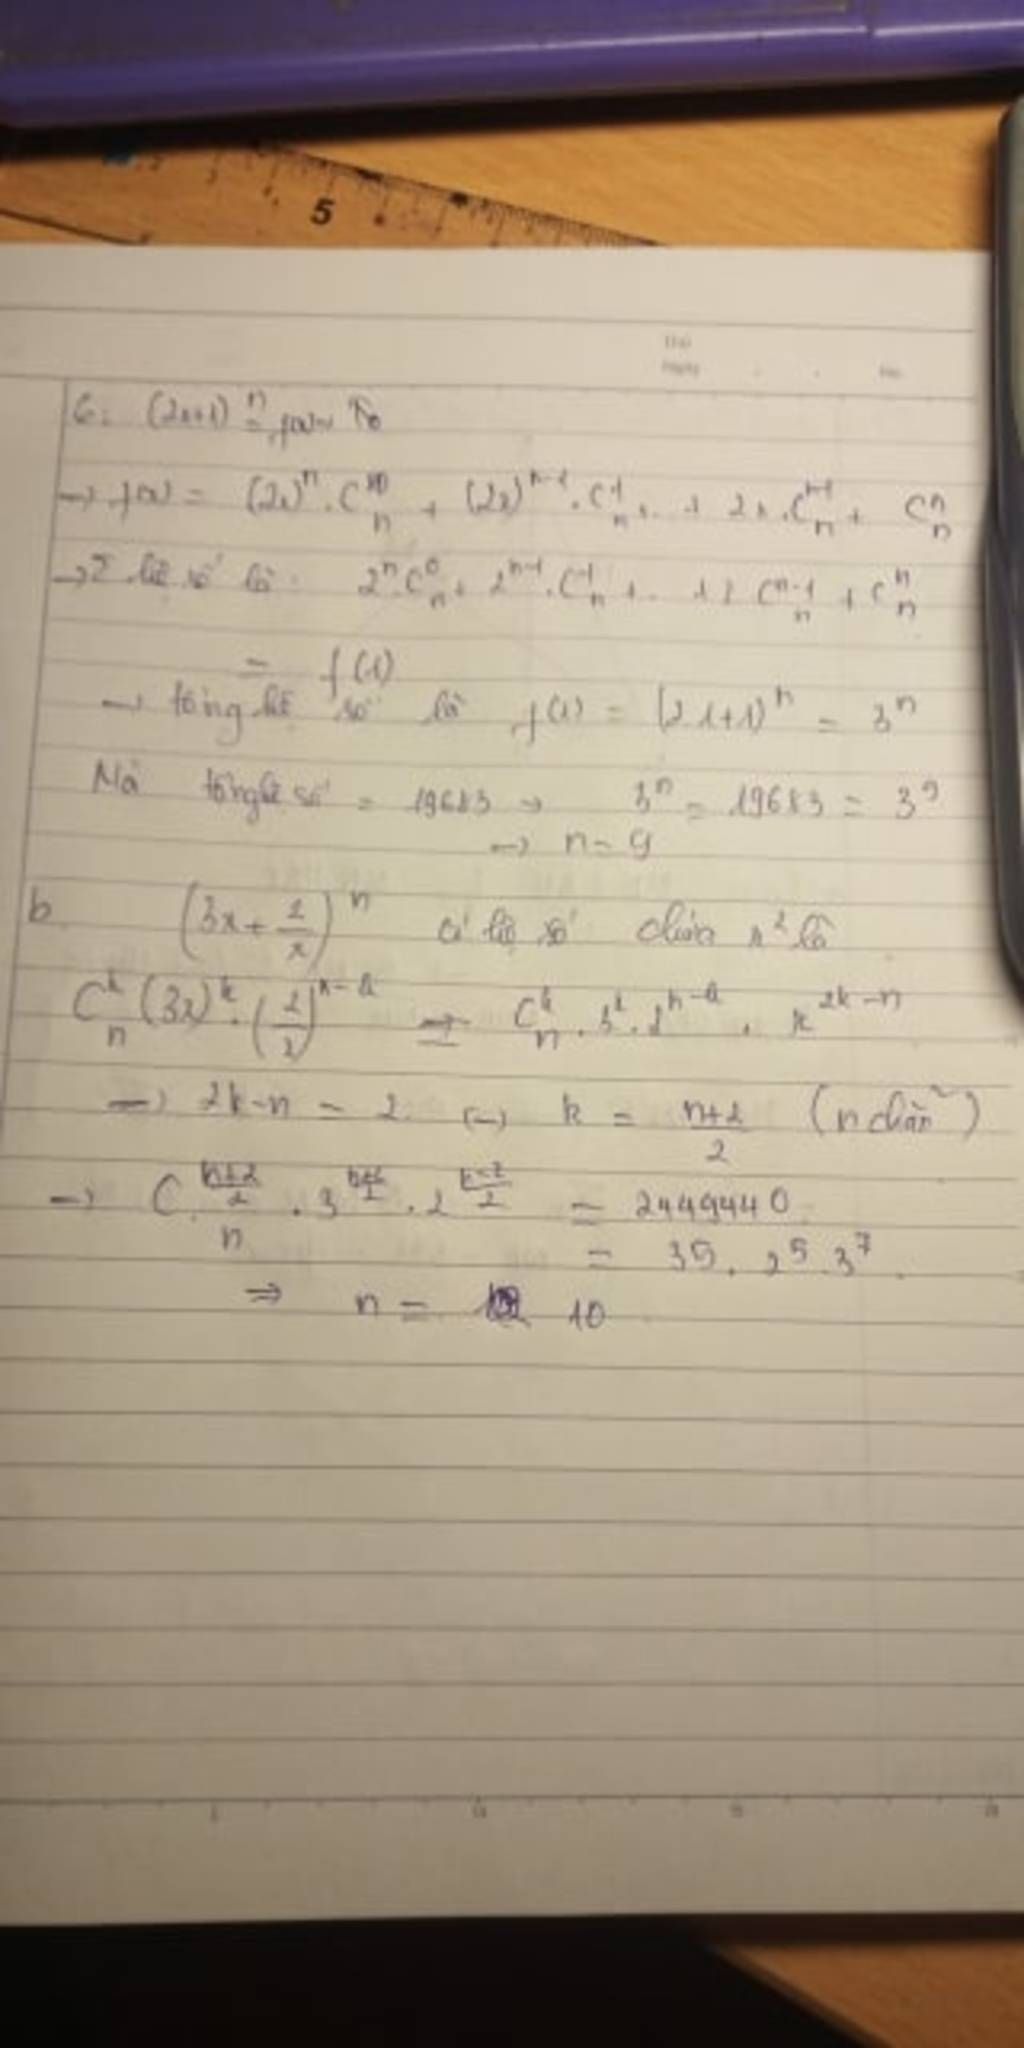 5
Thứ
Ngày . . No.
6: (2x+1)ⁿ = f(x)
→ f(x) = (2x)ⁿ . C⁰ₙ + (2x)ⁿ⁻¹ . C¹ₙ + .. + 2x . Cⁿ⁻¹ₙ + Cⁿₙ
→ Σ hệ số là : 2ⁿ C⁰ₙ + 2ⁿ⁻¹ . C¹ₙ + .. + 2 Cⁿ⁻¹ₙ + Cⁿₙ
= f(1)
→ tổng hệ số là f(1) = (2.1+1)ⁿ = 3ⁿ
Mà tổng hệ số = 19683 → 3ⁿ = 19683 = 3⁹
→ n = 9
b (3x + 2/x)ⁿ có hệ số chứa x² là
Cᵏₙ (3x)ᵏ . (2/x)ⁿ⁻ᵏ ⇒ Cᵏₙ . 3ᵏ . 2ⁿ⁻ᵏ . x²ᵏ⁻ⁿ
→ 2k-n = 2 (→) k = (n+2)/2 (n chẵn)
→ C^((n+2)/2)ₙ . 3^((n+2)/2) . 2^((n-2)/2) = 2449440
= 35 . 2⁵ . 3⁷
⇒ n = 10